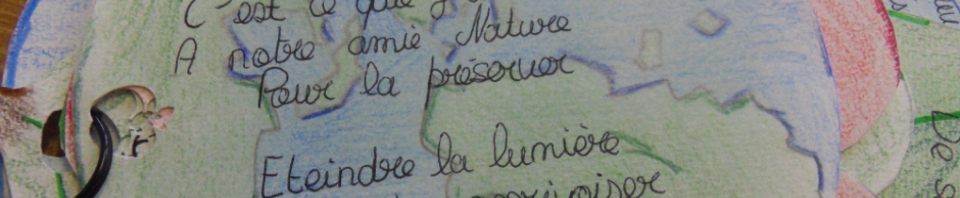 C'est ce que
A notre amie Nature
Pour la préserver
Eteindre la lumière
apprivoiser
De